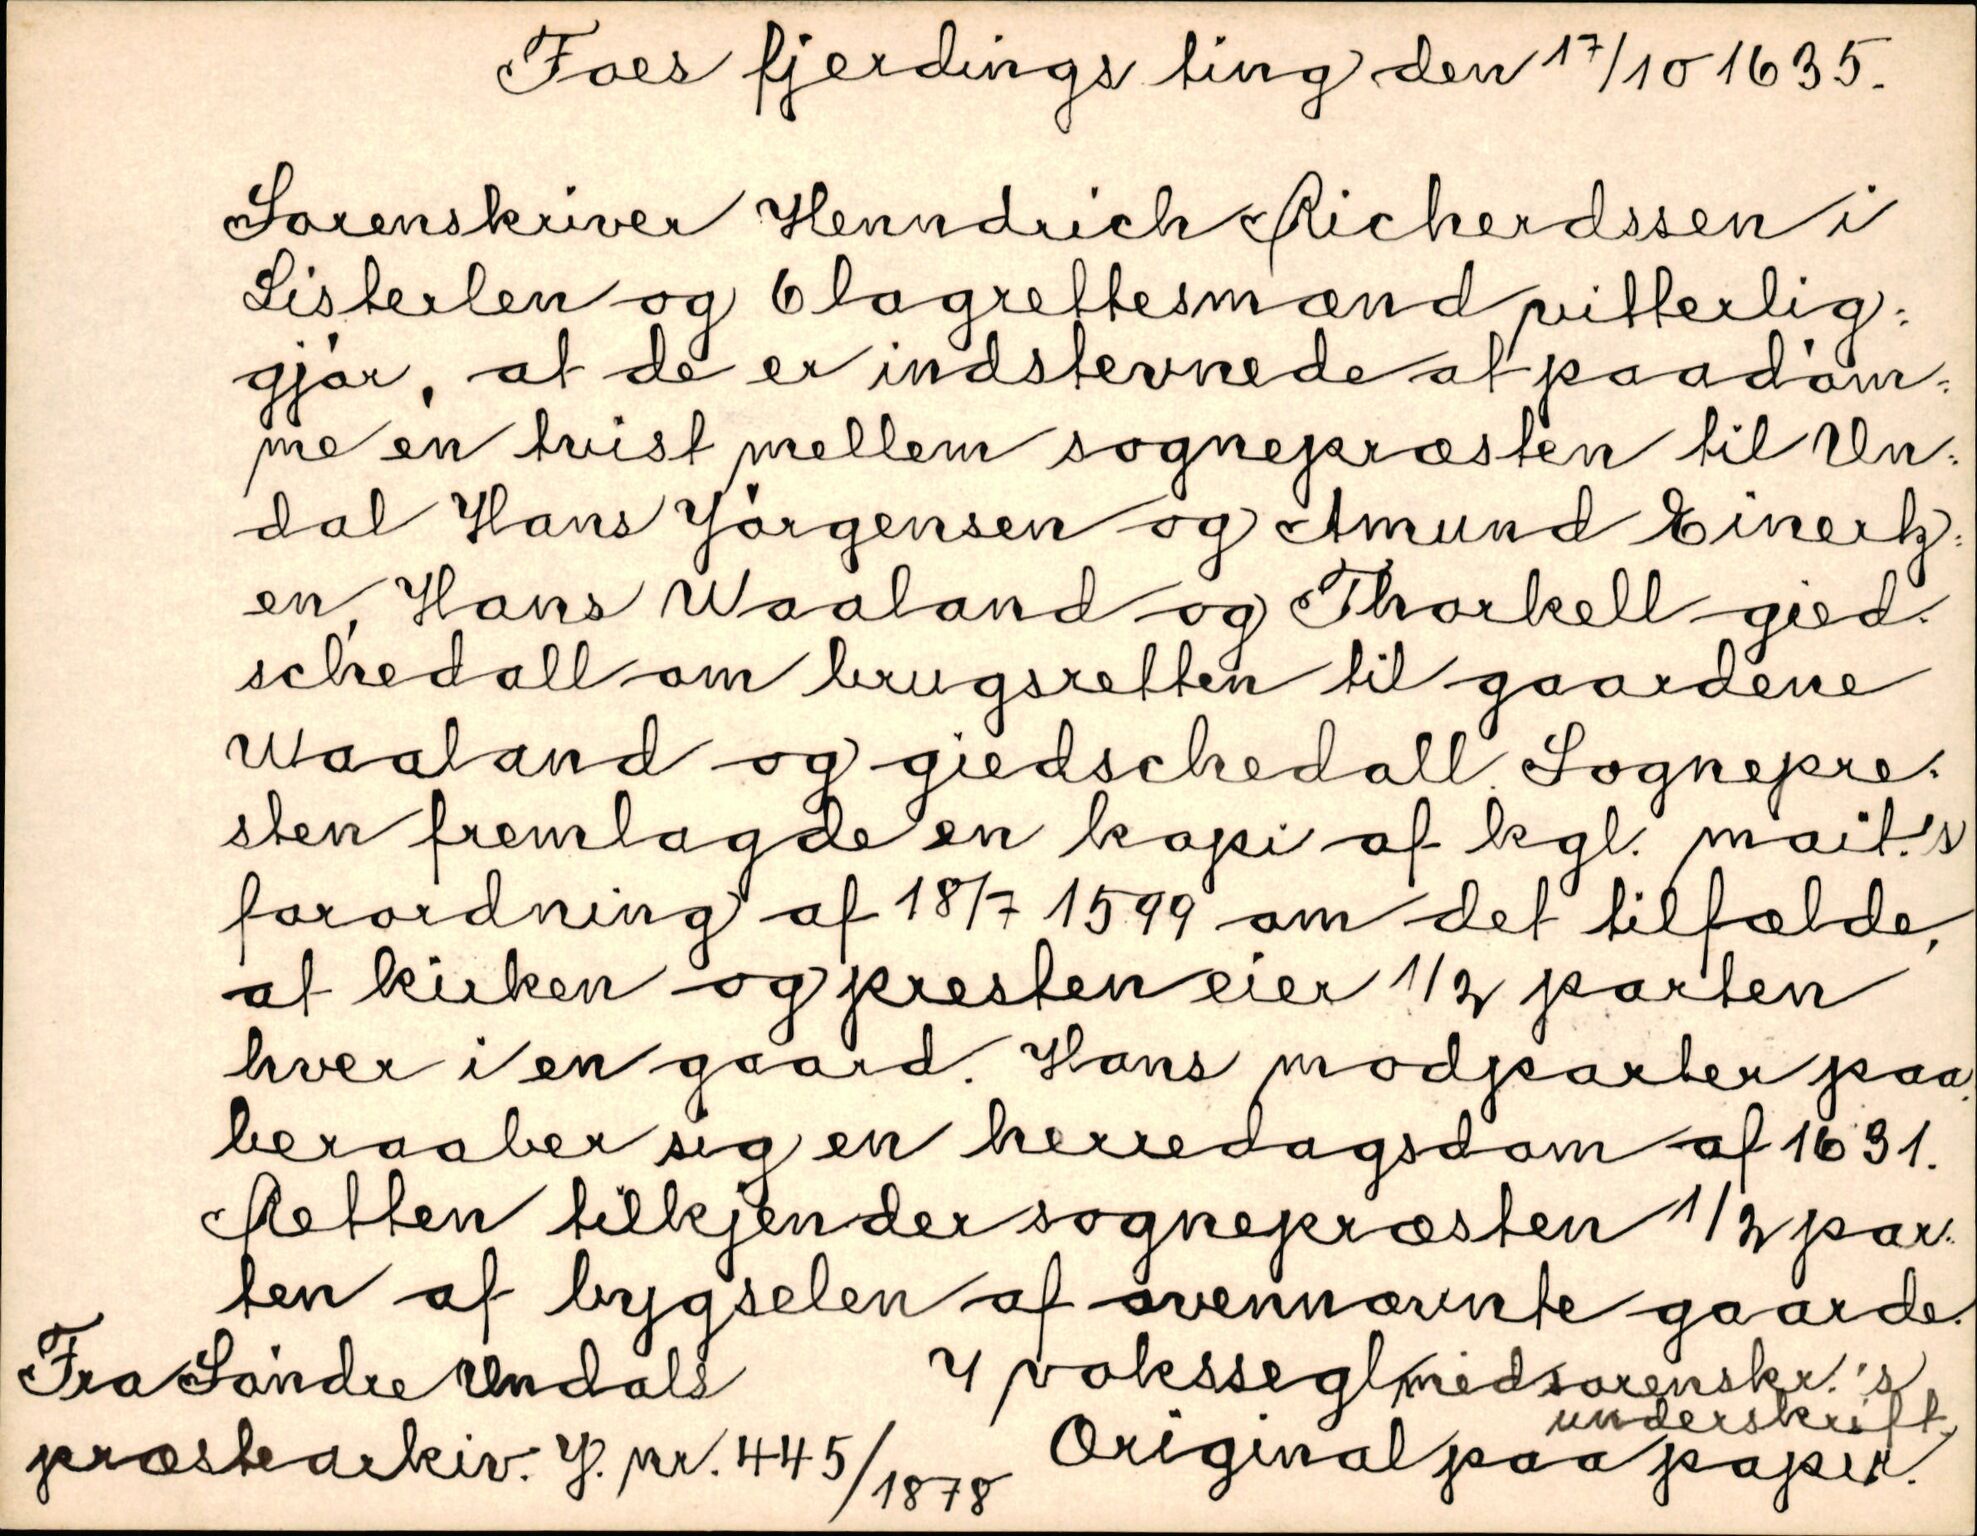 Foes fjerdings ting den 17/10 1635.
Sorenskriver Henndrich Richerdssen i
Listerlen og 6 lagrettesmænd vitterlig-
gjör, at de er indstevnede at paadöm-
me en tvist mellem sognepræsten til Un-
dal Hans Jörgensen og Amund Einertz-
en, Hans Waaland og Thorkell gied-
schedall om brugsretten til gaardene
Waaland og giedschedall. Sognepre-
sten fremlagde en kopi af kgl. mait.'s
forordning af 18/7 1599 om det tilfælde,
at kirken og presten eier 1/2 parten
hver i en gaard. Hans modparter paa-
beraaber sig en herredagsdom af 1631.
Retten tilkjender sognepræsten 1/2 par-
ten af bygselen af ovennævnte gaarde.
4 vokssegl med sorenskr.'s
underskrift.
Fra Söndre Undals
præstearkiv. J. nr. 445/1878
Original paa papir.